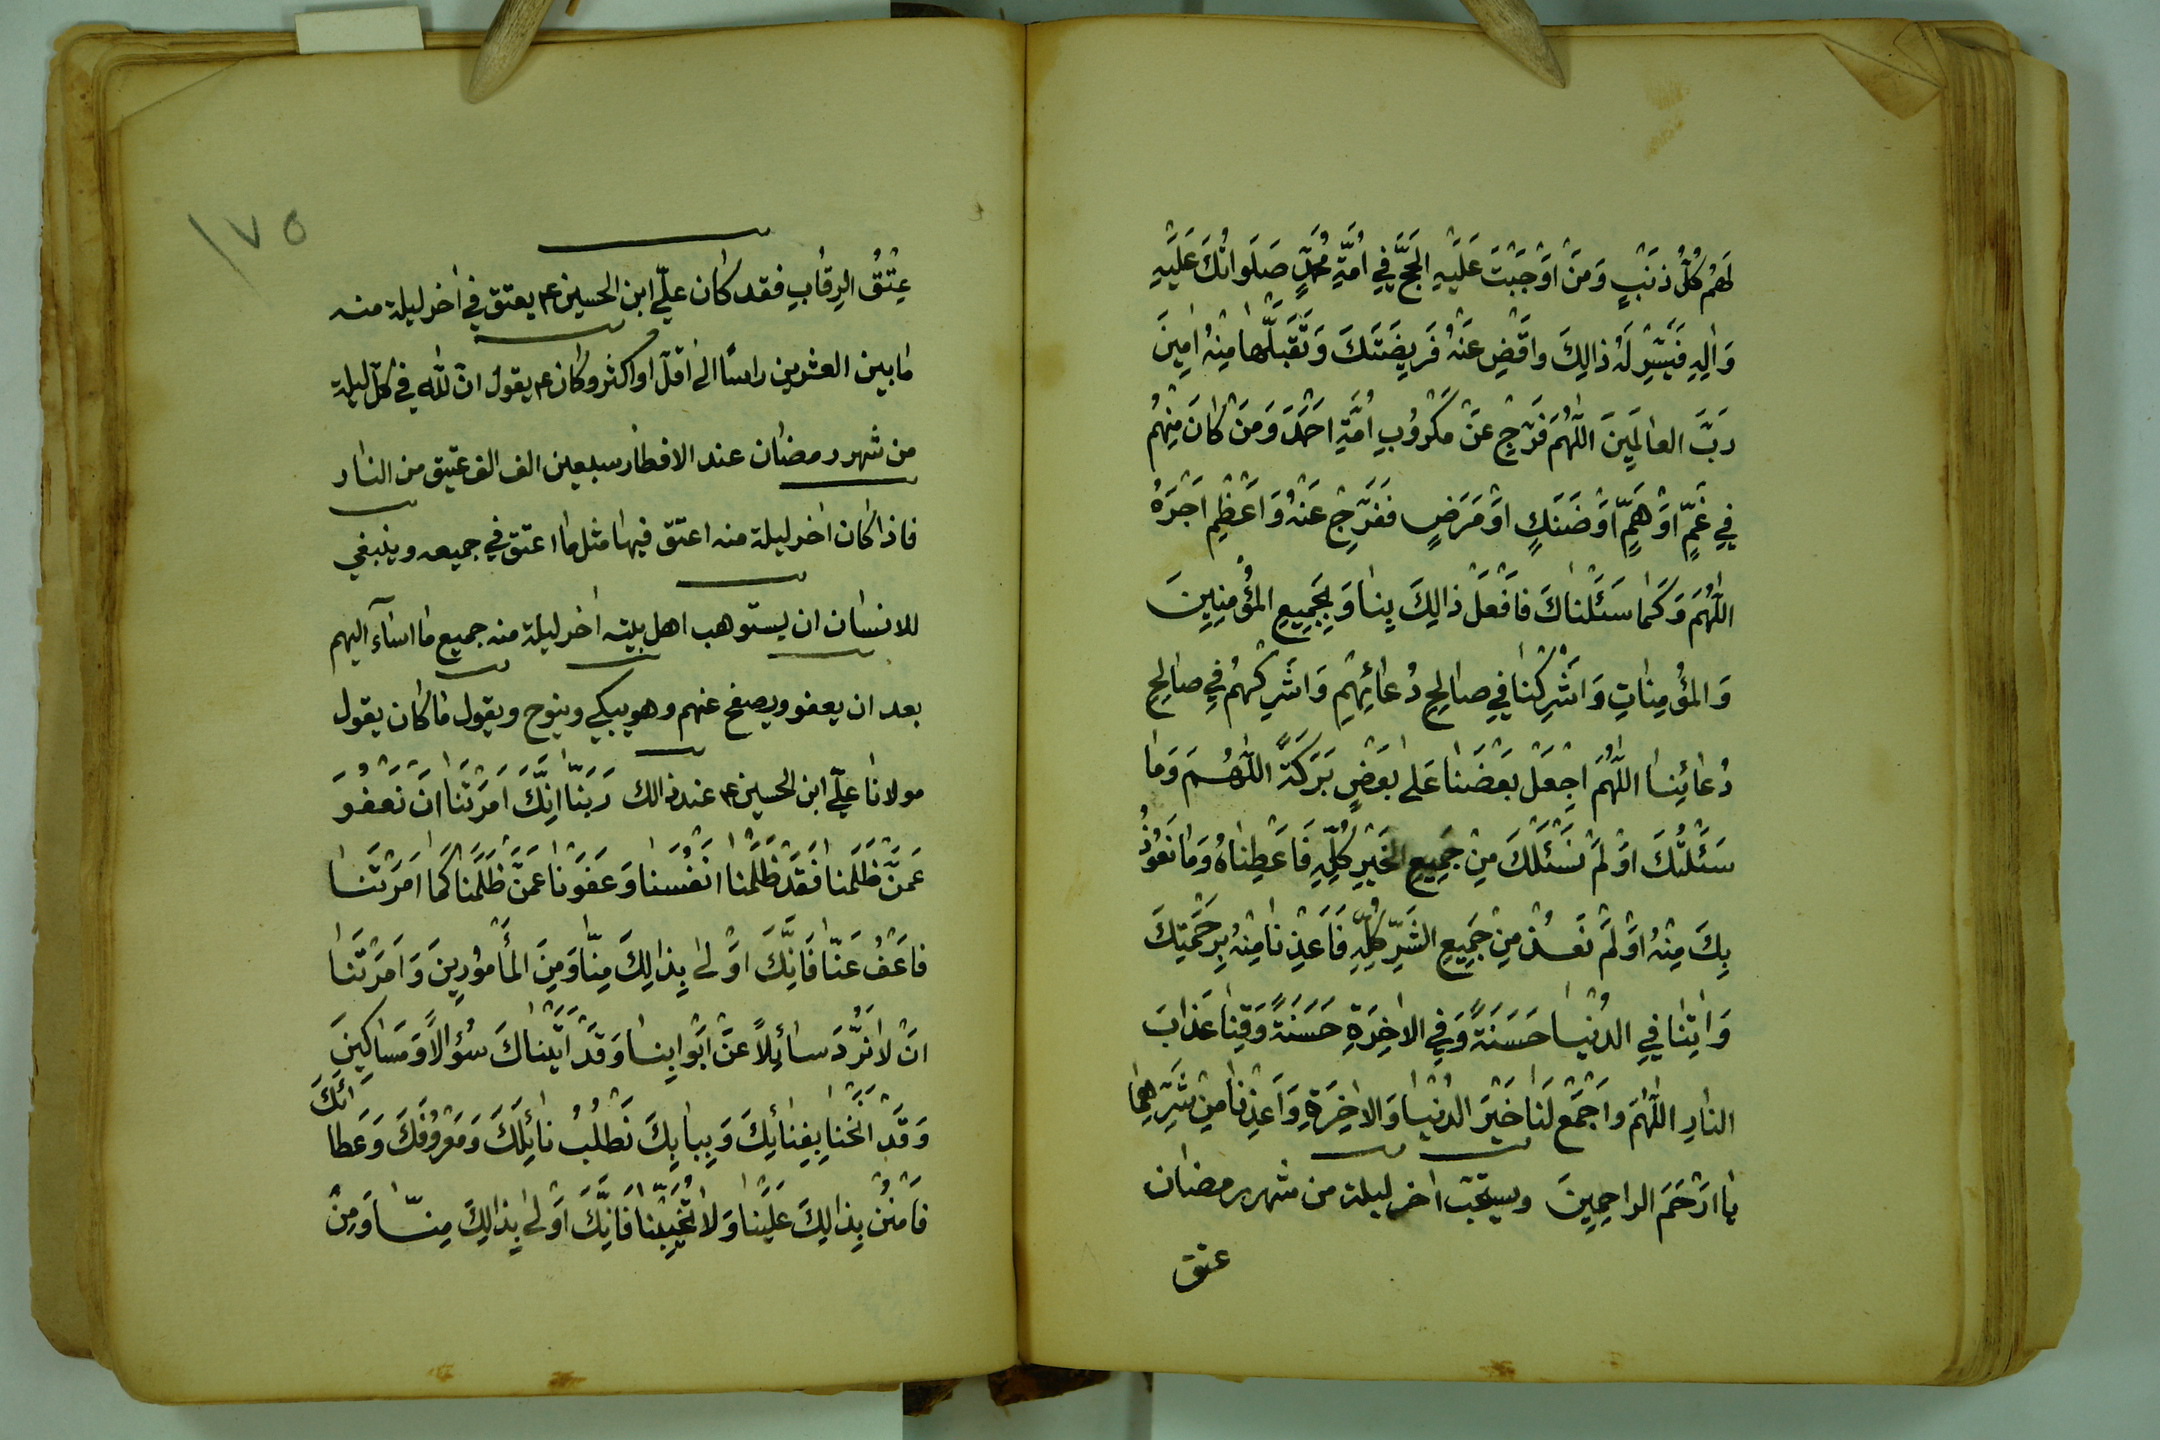 لَهُمْ كُلَّ ذَنْبٍ وَمَنْ اَوْجَبْتَ عَلَيْهِ الْحَجَّ فِي اُمَّةِ مُحَمَّدٍ صَلَوٰاتُكَ عَلَيْهِ
وَاٰلِهِ فَيَسِّرْ لَهُ ذٰالِكَ وَاقْضِ عَنْهُ فَرِيضَتَكَ وَتَقَبَّلْهٰا مِنْهُ اٰمِينَ
رَبَّ الْعٰالَمِينَ اَللّٰهُمَّ فَرِّجْ عَنْ مَكْرُوبِ اُمَّةِ اَحْمَدَ وَمَنْ كٰانَ مِنْهُمْ
فِي غَمٍّ اَوْ هَمٍّ اَوْ ضَنَكٍ اَوْ مَرَضٍ فَفَرِّجْ عَنْهُ وَاَعْظِمْ اَجْرَهُ
اَللّٰهُمَّ وَكَمٰا سَئَلْنٰاكَ فَافْعَلْ ذٰالِكَ بِنٰا وَبِجَمِيعِ الْمُؤْمِنِينَ
وَالْمُؤْمِنٰاتِ وَاَشْرِكْنٰا فِي صٰالِحِ دُعٰائِهِمْ وَاَشْرِكْهُمْ فِي صٰالِحِ
دُعٰائِنٰا اَللّٰهُمَّ اجْعَلْ بَعْضَنٰا عَلٰى بَعْضٍ بَرَكَةً اَللّٰهُمَّ وَمٰا
سَئَلْنٰكَ اَوْ لَمْ نَسْئَلْكَ مِنْ جَمِيعِ الْخَيْرِ كُلِّهِ فَاَعْطِنٰاهُ وَمٰا نَعُوذُ
بِكَ مِنْهُ اَوْ لَمْ نَعُذْ مِنْ جَمِيعِ الشَّرِّ كُلِّهِ فَاَعِذْنٰا مِنْهُ بِرَحْمَتِكَ
وَاٰتِنٰا فِي الدُّنْيٰا حَسَنَةً وَفِي الْاٰخِرَةِ حَسَنَةً وَقِنٰا عَذٰابَ
النّٰارِ اَللّٰهُمَّ وَاجْمَعْ لَنٰا خَيْرَ الدُّنْيٰا وَالْاٰخِرَةِ وَاَعِذْنٰا مِنْ شَرِّهِمٰا
يٰا اَرْحَمَ الرّٰاحِمِينَ ويستحبّ اخر ليلة من شهر رمضٰان
عتق
١٧٥
عِتْقُ الرِقٰابِ فقد كٰان عليّ ابن الحسين ع يعتق في اٰخر ليلة منه
مٰا بين العشرين راسًا الى اقلّ او اكثر وكان ع يقول انّ للّٰه في كلّ ليلة
من شهر رمضٰان عند الافطٰار سبعين الف الف عتيق من النٰار
فاذا كٰان اٰخر ليلة منه اعتق فيهٰا مثل مٰا اعتق في جميعه وينبغي
للانسٰان ان يستوهب اهل بيته اٰخر ليلة منه جميع مٰا اسٰاۤء اليهم
بعد ان يعفو ويصفح عنهم وهو يبكي وينوح ويقول مٰا كٰان يقول
مولانٰا عليّ ابن الحسين ع عند ذٰالك رَبَّنٰا اِنَّكَ اَمَرْتَنٰا اَنْ نَعْفُوَ
عَمَّنْ ظَلَمَنٰا فَقَدْ ظَلَمْنٰا اَنْفُسَنٰا وَعَفَوْنٰا عَمَّنْ ظَلَمَنٰا كَمٰا اَمَرْتَنٰا
فَاعْفُ عَنّٰا فَاِنَّكَ اَوْلٰى بِذٰالِكَ مِنّٰا وَمِنَ الْمَأْمُورِينَ وَاَمَرْتَنٰا
اَنْ لٰا نَرُدَّ سٰائِلًا عَنْ اَبْوٰابِنٰا وَقَدْ اَتَيْنٰاكَ سُؤّٰالًا وَمَسٰاكِينَ
وَقَدْ اَنَخْنٰا بِفِنٰائِكَ وَبِبٰابِكَ نَطْلُبُ نٰائِلَكَ وَمَعْرُوفَكَ وَعَطٰائَكَ
فَامْنُنْ بِذٰالِكَ عَلَيْنٰا وَلٰا تُخَيِّبْنٰا فَاِنَّكَ اَوْلٰى بِذٰالِكَ مِنّٰا وَمِنْ